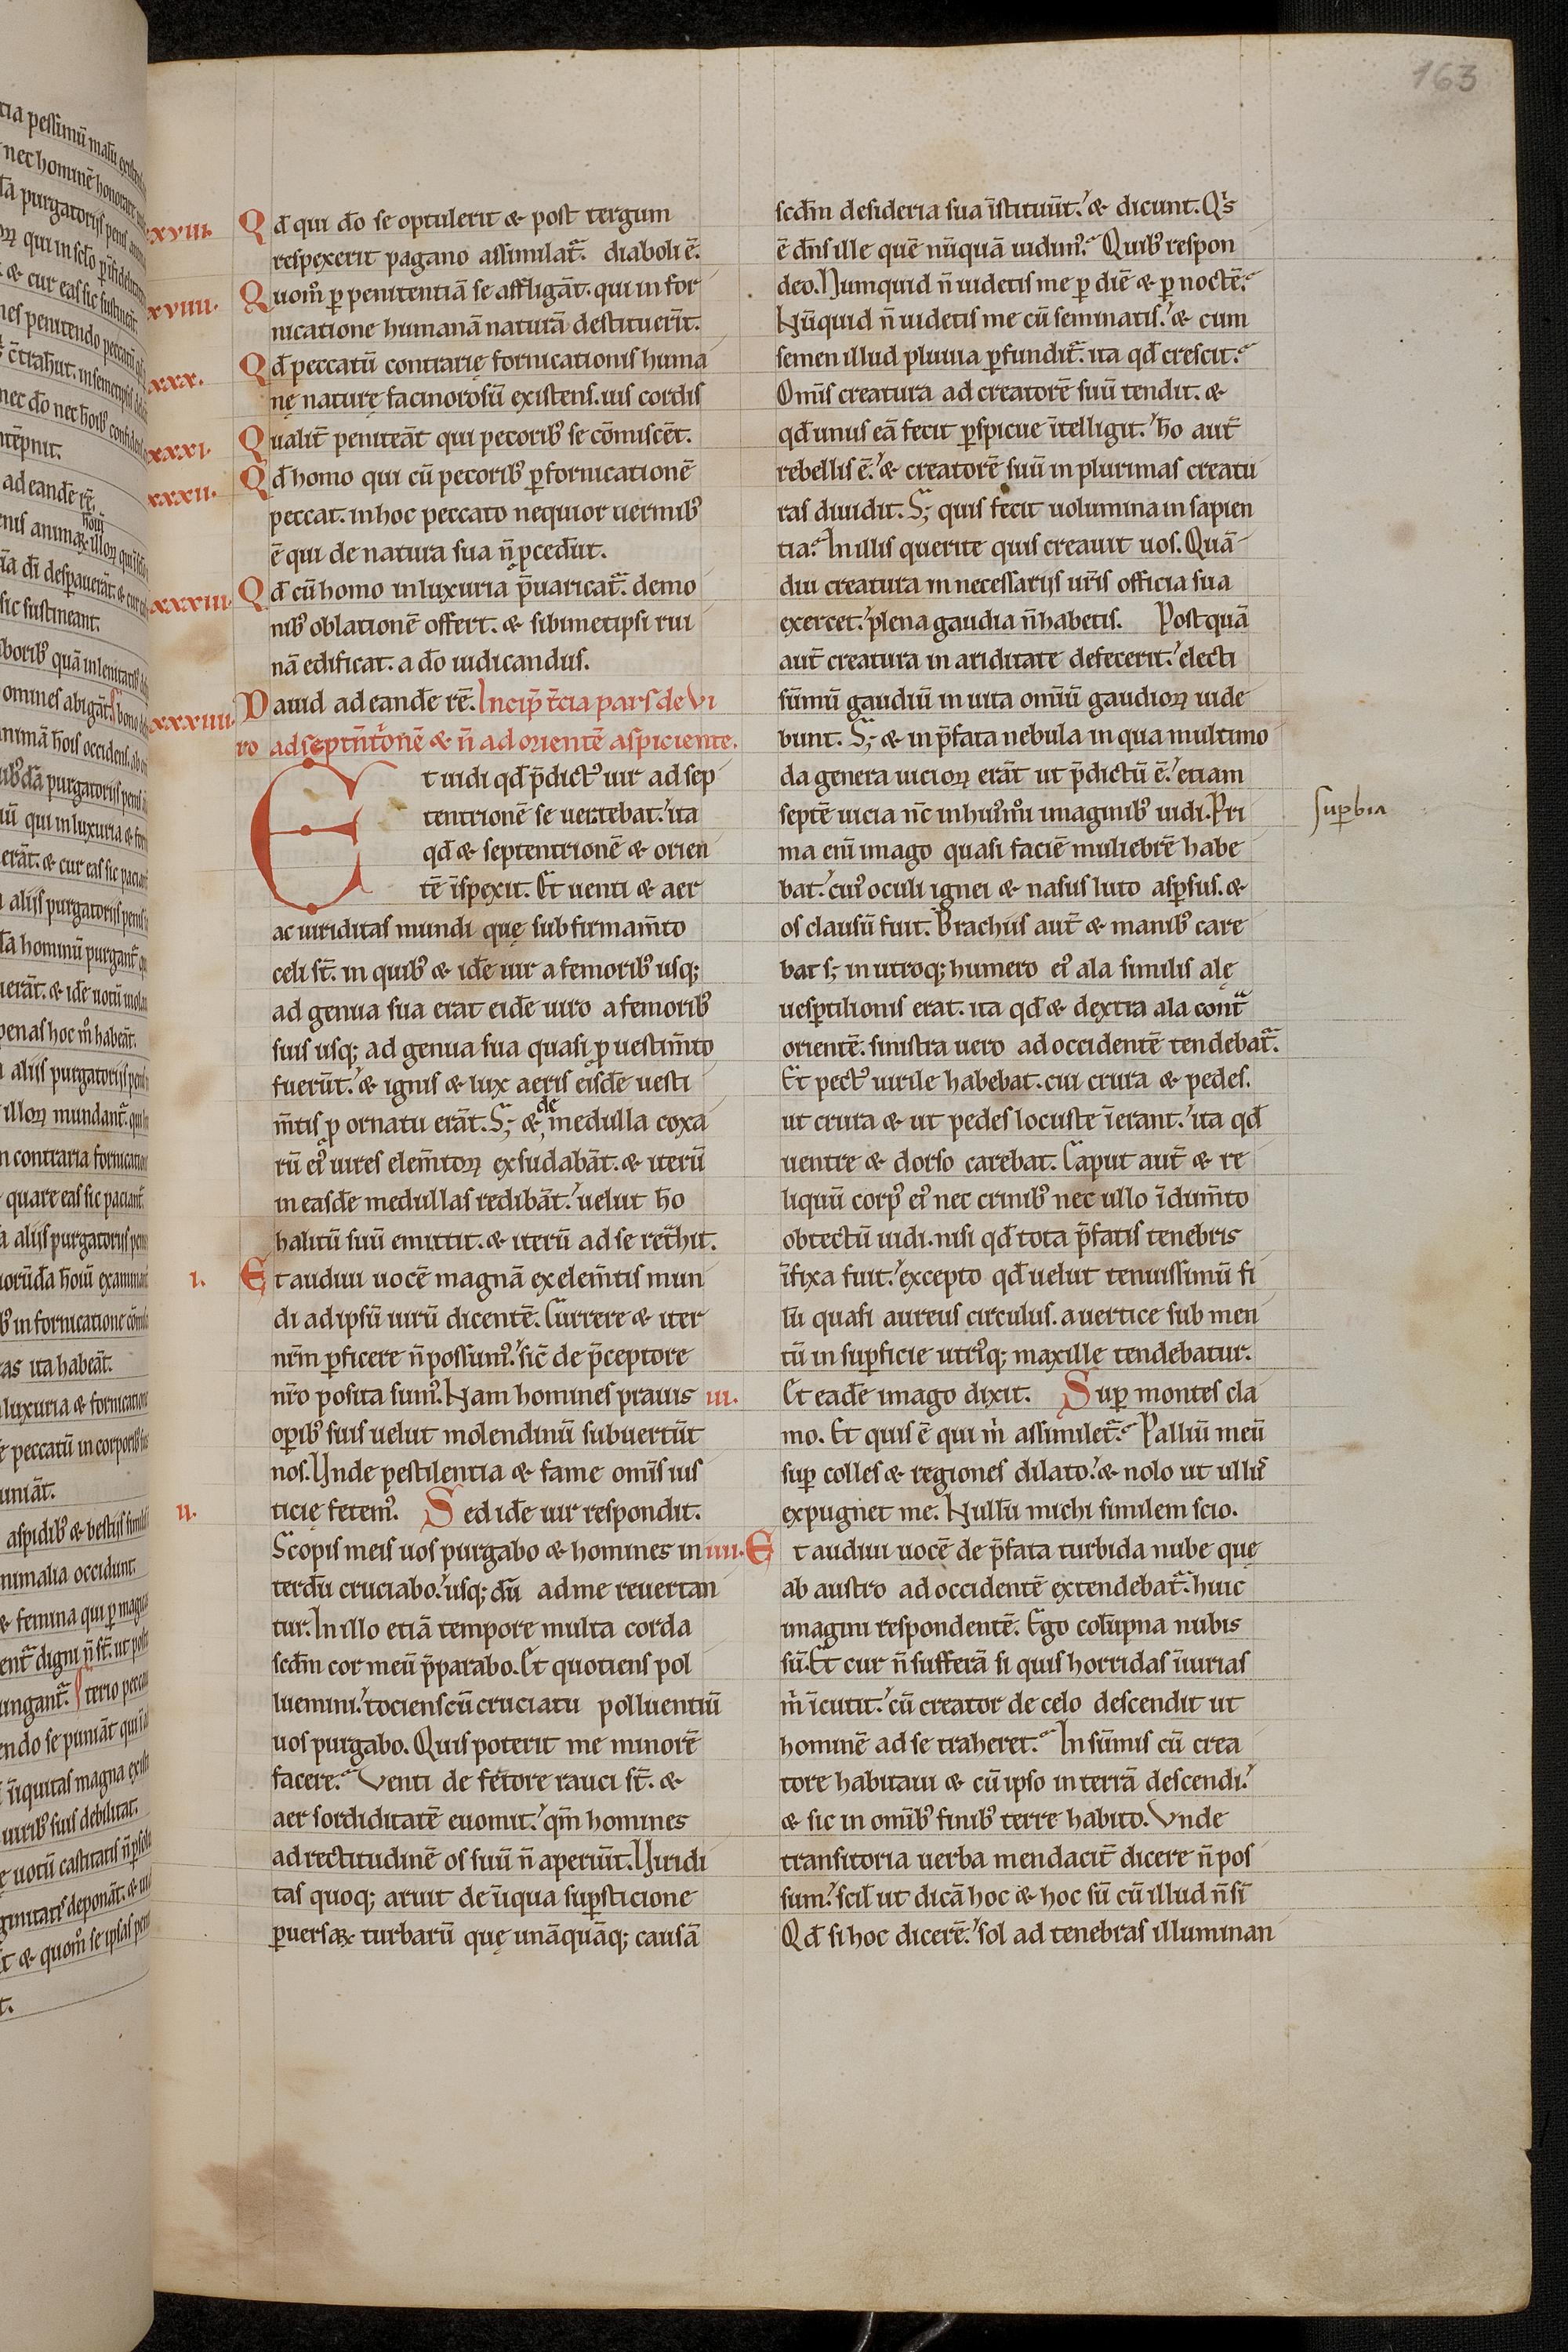 163
xxviii. Qđ qui dō se optulerit & post tergum
respexerit pagano assimilat̃. diaboli ē.
xxviiii. Quom̊ p penitentiā se affligāt. qui in for
nicatione humanā naturā destituer̄t.
xxx. Qđ peccatū contrarię fornicationis huma
nę naturę facinorosū existens. uis cordis
xxxi. Qualit̃ peniteāt qui pecorib᷒ se cōmiscēt.
xxxii. Qđ homo qui cū pecorib᷒ p fornicationē
peccat. in hoc peccato nequior uermib᷒
ē qui de natura sua n̄ p̱cedūt.
xxxiii. Qđ cū homo in luxuria p̄uaricat̃. demo
nib᷒ oblationē offert. & sibimetipsi rui
nā edificat. a dō iudicandus.
xxxiiii. Dauid ad eandē rē. Incip̄ t̄cia pars de vi
ro ad septn̄t̊onē & n̄ ad orientē aspiciente.
Et uidi qđ p̄dict᷒ uir ad sep
tentrionē se uertebat.' ita
qđ & septentrionē & orien
tē īspexit. Et uenti & aer
ac uiriditas mundi quę sub firmam̄to
celi st̄. in quib᷒ & idē uir a femorib᷒ usq;
ad genua sua erat eidē uiro a femorib᷒
suis usq; ad genua sua quasi p uestim̄to
fuerūt.' & ignis & lux aeris eisdē uesti
m̄tis p ornatu erāt. S; & de medulla coxa
rū ei᷒ uires elem̄toꝝ exsudabāt. & iterū
in easdē medullas redibāt.' uelut h̄o
halitū suū emittit. & iterū ad se ret̃hit.
i. Et audiui uocē magnā ex elem̄tis mun
di ad ipsū uirū dicentē. Currere & iter
nr̄m p̱ficere n̄ possum᷒.' sic̄ de p̄ceptore
nr̄o posita sum᷒. Nam homines prauis
op̱ib᷒ suis uelut molendinū subuertūt
nos. Vnde pestilentia & fame om̄is ius
ticię fetem᷒. ii. Sed idē uir respondit.
Scopis meis uos purgabo & homines in
terdū cruciabo.' usq; dū ad me reuertan
tur. In illo etiā tempore multa corda
scđm cor meū p̄parabo. Et quotiens pol
luemini.' tociens cū cruciatu polluentiū
uos purgabo. Quis poterit me minorē
facere. Venti de fetore rauci st̄. &
aer sordiditatē euomit.' qm̄ homines
ad rectitudinē os suū n̄ aperiūt. Viridi
tas quoq; aruit de īiqua sup̱sticione
p̱uersaꝝ turbarū quę unāquāq; causā
scđm desideria sua īstituūt.' & dicunt. Q's
ē dn̄s ille quē nūquā uidim᷒. Quib᷒ respon
deo. Numquid n̄ uidetis me p diē & p noctē.
Nūquid n̄ uidetis me cū seminatis.' & cum
semen illud pluuia p̱fundit̃. ita qđ crescit.
Om̄is creatura ad creatorē suū tendit. &
qđ unus eā fecit p̱spicue ītelligit.' h̄o aut̃
rebellis ē.' & creatorē suū in plurimas creatu
ras diuidit. S; quis fecit uolumina in sapien
tia. In illis querite quis creauit uos. Quā
diu creatura in necessarijs ur̄is officia sua
exercet.' plena gaudia n̄ habetis. Postquā
aut̃ creatura in ariditate defecerit.' electi
sūmū gaudiū in uita om̄iū gaudioꝝ uide
bunt. S; & in p̄fata nebula in qua multimo
da genera uicioꝝ erāt ut p̄dictū ē.' etiam
septē uicia n̄c in hui᷒m̊i imaginib᷒ uidi. Pri
ma eni imago quasi faciē muliebrē habe
bat.' cui᷒ oculi ignei & nasus luto asp̱sus. &
os clausū fuit. Brachiis aut̃ & manib᷒ care
bat s; in utroq; humero ei᷒ ala similis alę
uesp̱tilionis erat. ita qđ & dextra ala cont̃
orientē. sinistra uero ad occidentē tendebat̃.
Et pect᷒ uirile habebat. cui crura & pedes.
ut crura & ut pedes locuste īerant.' ita qđ
uentre & dorso carebat. Caput aut̃ & re
liquū corp᷒ ei᷒ nec crinib᷒ nec ullo īdum̄to
obtectū uidi. nisi qđ tota p̄fatis tenebris
īfixa fuit.' excepto qđ uelut tenuissimū fi
lū quasi aureus circulus. a uertice sub men
tū in sup̱ficie utri᷒q; maxille tendebatur.
Et eadē imago dixit. iii. Sup̱ montes cla
mo. Et quis ē qui m̊ assimilet̃. Palliū meū
sup̱ colles & regiones dilato.' & nolo ut ullus
expugnet me. Nullū michi similem scio.
iiii. Et audiui uocē de p̄fata turbida nube quę
ab austro ad occidentē extendebat̃.' huic
imagini respondentē. Ego colūpna nubis
sū. Et cur n̄ sufferā si quis horridas īiurias
m̊ īcutit.' cū creator de celo descendit ut
hominē ad se traheret. In sūmis cū crea
tore habitaui & cū ipso in terrā descendi.'
& sic in omīb᷒ finib᷒ terre habito. Vnde
transitoria uerba mendacit̃ dicere n̄ pos
sum.' scil ut dicā hoc & hoc sū cū illud n̄ si
Qđ si hoc dicerē.' sol ad tenebras illuminan
sup̱bia